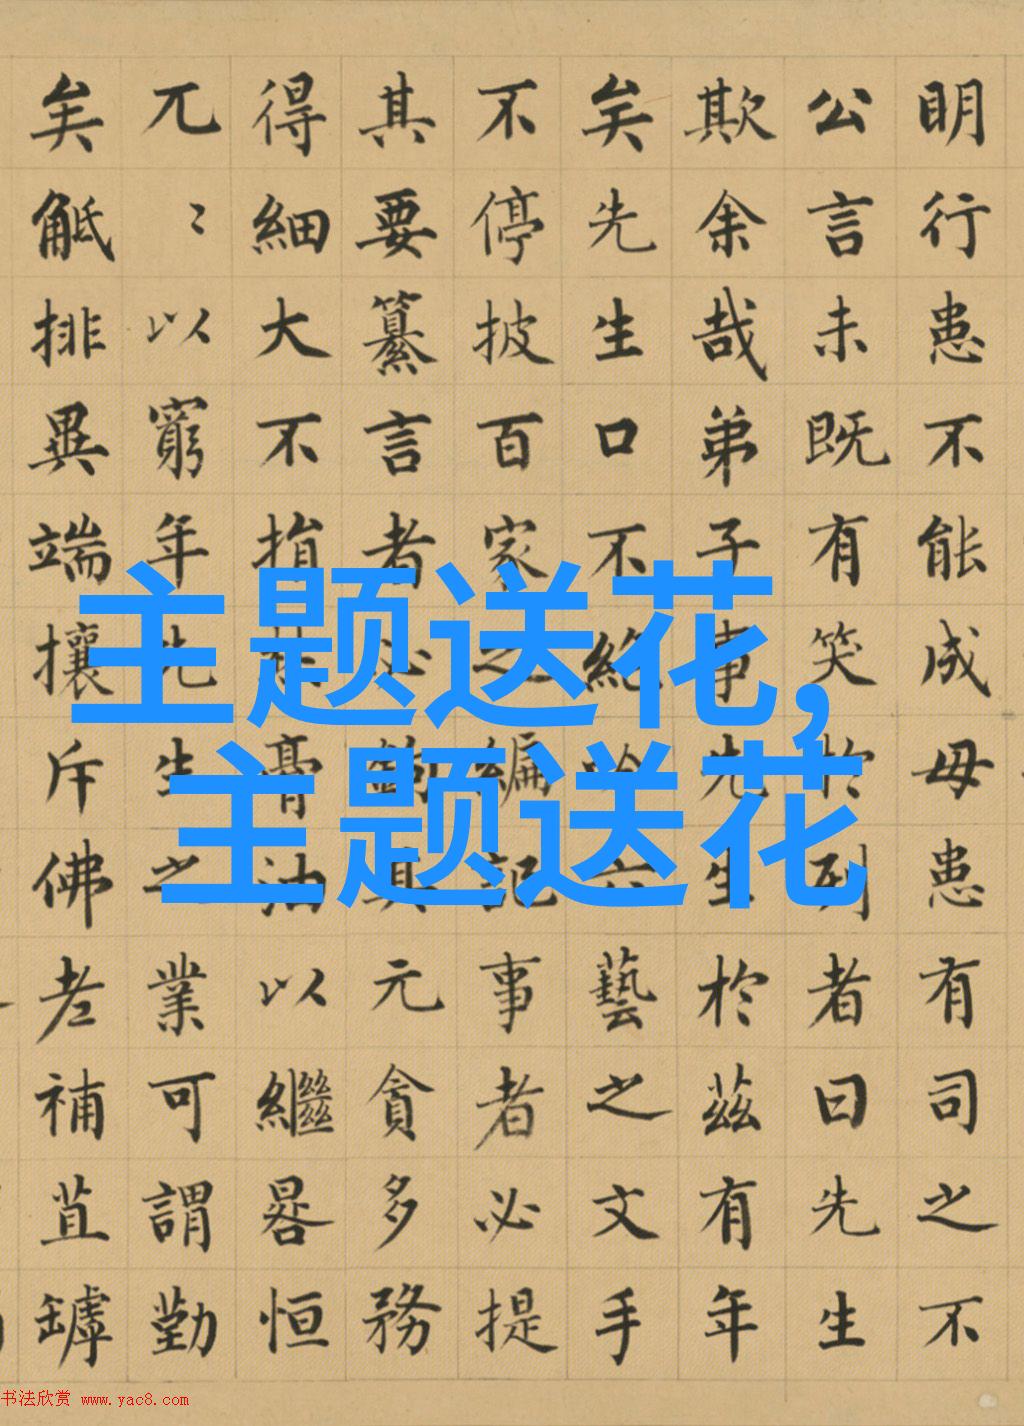 明行患不能成毋患有司之不
公言未既有笑於列者曰先生
欺余哉弟子事先生於茲有年
矣先生口不絕吟六藝之文手
不停披百家之編記事者必提
其要纂言者必鉤其元貪多務
得細大不捐焚膏油以繼晷恒
兀〻以窮年先生之業可謂勤
矣觝排異端攘斥佛老補苴罅
主题送花,
主题送花
书法欣赏 www.yac8.com